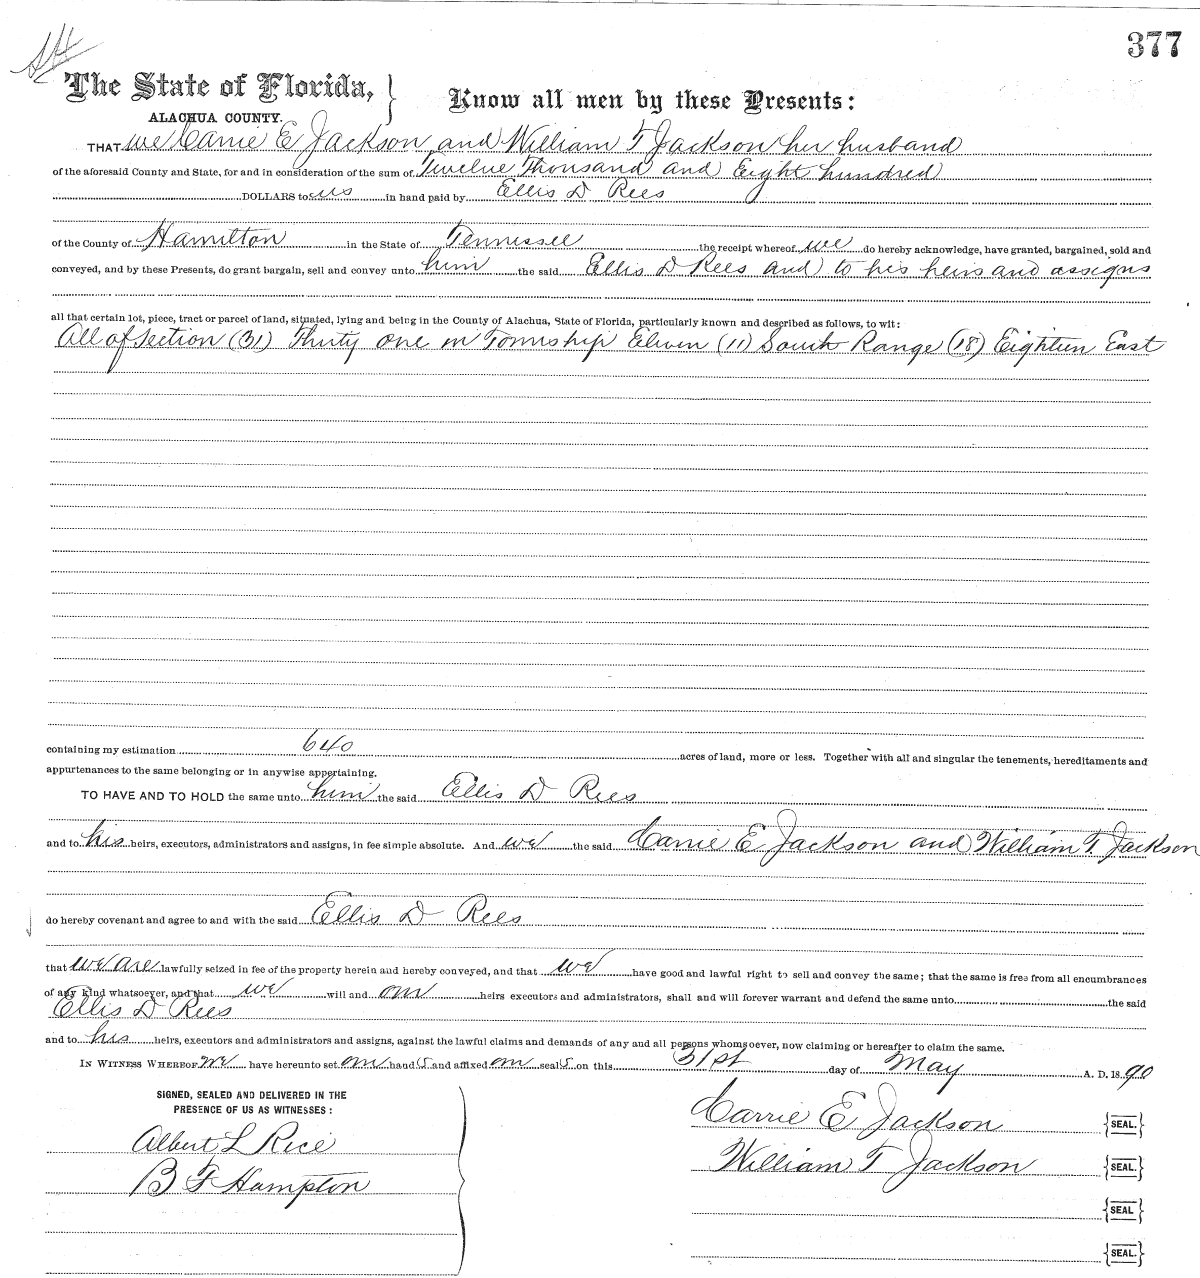 377
The State of Florida,
ALACHUA COUNTY.
Know all men by these Presents:
THAT we Carrie E Jackson and William T Jackson her husband
of the aforesaid County and State, for and in consideration of the sum of Twelve Thousand and Eight hundred
DOLLARS to us in hand paid by Ellis D Rees
of the County of Hamilton in the State of Tennessee the receipt whereof we do hereby acknowledge, have granted, bargained, sold and
conveyed, and by these Presents, do grant bargain, sell and convey unto him the said Ellis D Rees and to his heirs and assigns
all that certain lot, piece, tract or parcel of land, situated, lying and being in the County of Alachua, State of Florida, particularly known and described as follows, to wit:
All of Section (31) Thirty one in Township Eleven (11) South Range (18) Eighteen East
containing my estimation 640 acres of land, more or less. Together with all and singular the tenements, hereditaments and
appurtenances to the same belonging or in anywise appertaining.
TO HAVE AND TO HOLD the same unto him the said Ellis D Rees
and to his heirs, executors, administrators and assigns, in fee simple absolute. And we the said Carrie E Jackson and William T Jackson
do hereby covenant and agree to and with the said Ellis D Rees
that we are lawfully seized in fee of the property herein and hereby conveyed, and that we have good and lawful right to sell and convey the same; that the same is free from all encumbrances
of any kind whatsoever, and that we will and our heirs executors and administrators, shall and will forever warrant and defend the same unto the said
Ellis D Rees
and to his heirs, executors and administrators and assigns, against the lawful claims and demands of any and all persons whomsoever, now claiming or hereafter to claim the same.
IN WITNESS WHEREOF we have hereunto set our hand s and affixed our seal s on this 31st day of May A. D. 1890
SIGNED, SEALED AND DELIVERED IN THE
PRESENCE OF US AS WITNESSES:
Albert L Rice
B F Hampton
Carrie E Jackson SEAL.
William T Jackson SEAL.
SEAL
SEAL.